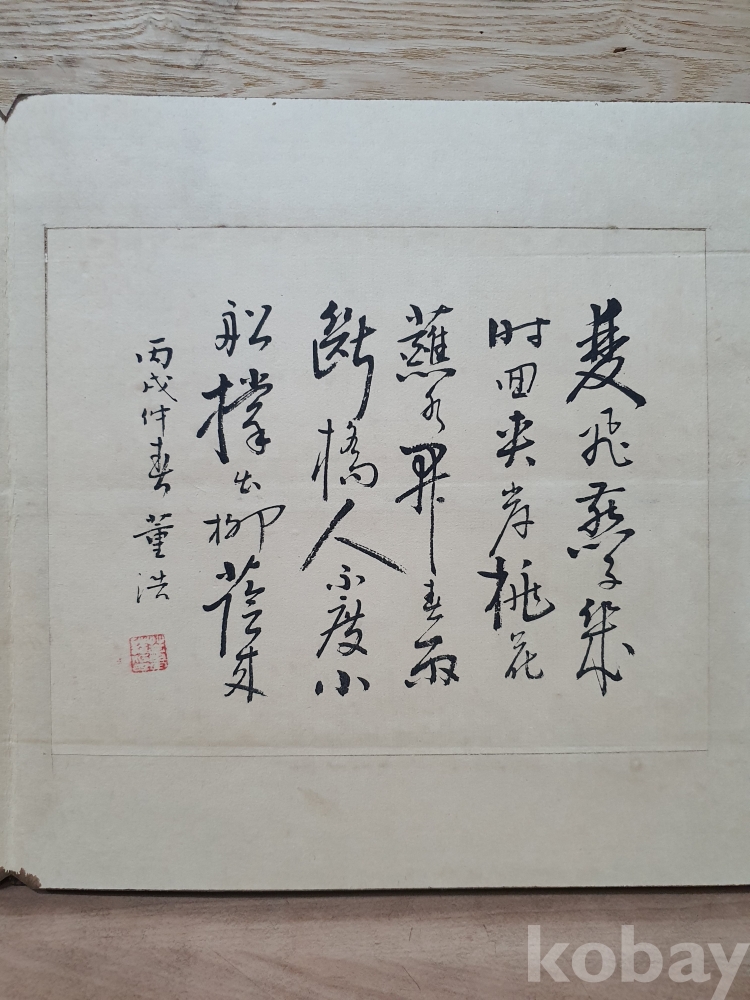 雙飛燕子幾
时回夾岸桃花
蘸水開春雨
斷橋人不度小
船撐出柳蔭來
丙戌仲春 董浩
kobay